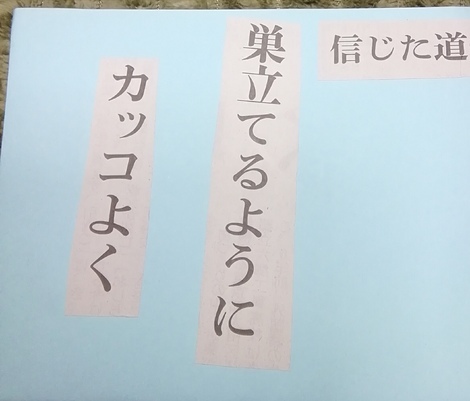 信じた道
巣立てるように
カッコよく